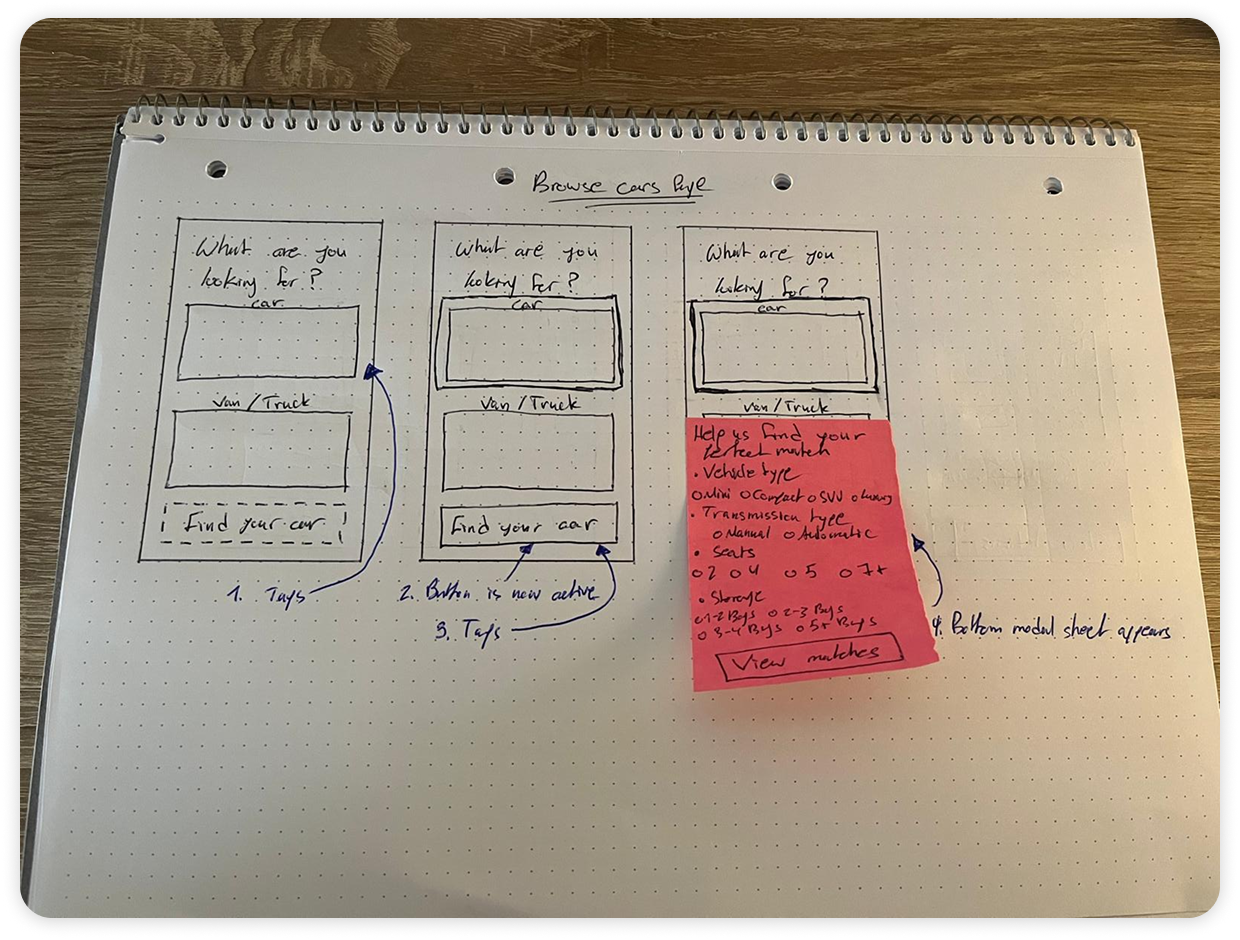 Browse cars Page
What are you
looking for?
car
Van/Truck
Find your car
1. Taps
What are you
looking for?
car
Van/Truck
Find your car
2. Button is now active
3. Taps
What are you
looking for?
car
Van/Truck
Help us find your
perfect match
• Vehicle type
○ Mini ○ Compact ○ SUV ○ Luxury
• Transmission type
○ Manual ○ Automatic
• Seats
○ 2 ○ 4 ○ 5 ○ 7+
• Storage
○ 1-2 Bags ○ 2-3 Bags
○ 3-4 Bags ○ 5+ Bags
View matches
4. Bottom modal sheet appears